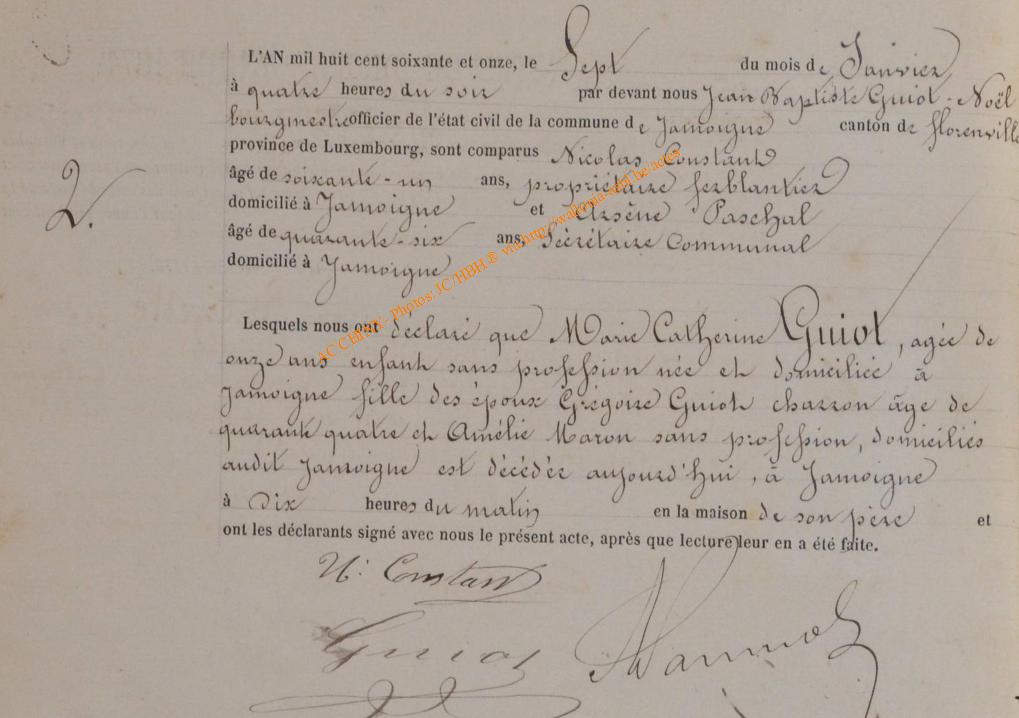 L'AN mil huit cent soixante et onze, le Sept du mois de Janvier
à quatre heures du soir par devant nous Jean Baptiste Guiot-Noël
bourgmestre officier de l'état civil de la commune de Jamoigne canton de florenville
province de Luxembourg, sont comparus Nicolas Constant
âgé de soixante-un ans, propriétaire ferblantier
domicilié à Jamoigne et Arsène Paschal
âgé de quarante-six ans, Sécrétaire Communal
domicilié à Jamoigne
2.
Lesquels nous ont déclaré que Marie Catherine Guiot, agée de
onze ans enfant sans profession née et domiciliée à
Jamoigne fille des époux Grégoire Guiot charron âge de
quarante quatre et Amélie Maron sans profession, domiciliés
audit Jamoigne est décédée aujourd'hui, à Jamoigne
à Dix heures du matin en la maison de son père et
ont les déclarants signé avec nous le présent acte, après que lecture leur en a été faite.
N. Constant
Guiot
AC CHINY - Photos: JC/HBH ® via http://wallonia-sud.be/actes